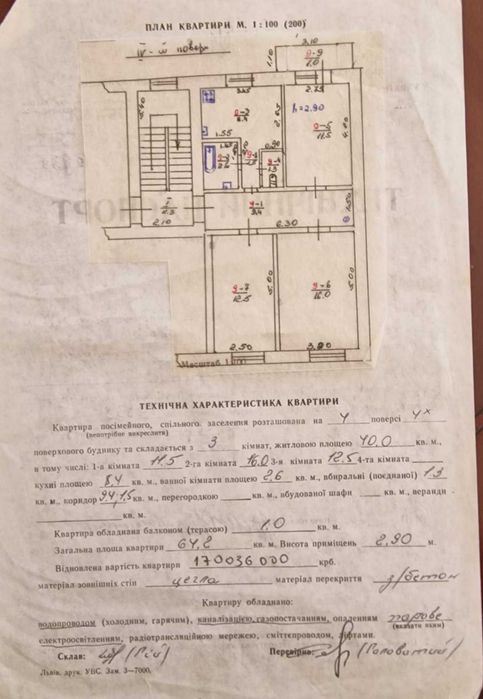 ПЛАН КВАРТИРИ М. 1:100 (200)
IV-й повер
3.10
1.10
9-9
1.0
5.40
3.25
9-2
8.4
2.65
2.75
h=2.90
9-5
11.5
4.20
1.55
9-4
1.3
I
2.10
9-1
9.4
6.30
1.50
9-7
12.5
5.00
9-6
16.0
5.00
2.50
3.20
Масштаб 1:100
ТЕХНІЧНА ХАРАКТЕРИСТИКА КВАРТИРИ
Квартира посімейного, спільного заселення розташована на 4 поверсі 4х
(непотрібне викреслити)
поверхового будинку та складається з 3 кімнат, житловою площею 40.0 кв. м.,
в тому числі: 1-а кімната 11.5 2-га кімната 16.0 3-я кімната 12.5 4-та кімната
кухні площею 8,4 кв. м., ванної кімнати площею 2,6 кв. м., вбиральні (поєднаної) 1.3
кв. м., коридор 9.4; 1,5 кв. м., перегородкою кв. м., вбудованої шафи кв. м., веранди
кв. м.
Квартира обладнана балконом (терасою) 1,0 кв. м.
Загальна площа квартири 64,2 кв. м. Висота приміщень 2.90 м.
Відновлена вартість квартири 170036000 крб.
матеріал зовнішніх стін цегла матеріал перекриття з/бетон
Квартиру обладнано:
водопроводом (холодним, гарячим), каналізацією, газопостачанням, опаленням парове
(вказати яким)
електроосвітленням, радіотрансляційною мережею, сміттєпроводом, ліфтами.
Склав: Перевірив:
Львів. друк. УВС. Зам. 3—7000.